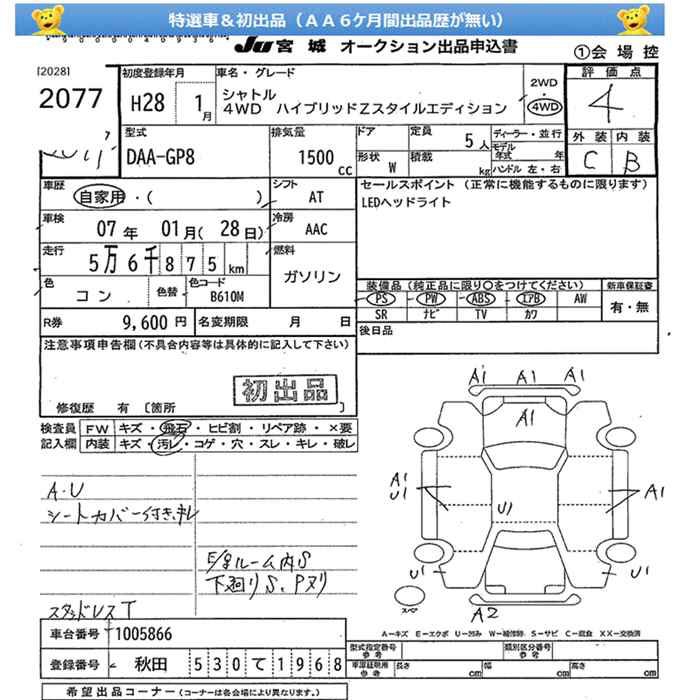 特選車＆初出品（ＡＡ６ケ月間出品歴が無い）
JU 宮城 オークション出品申込書
①会場控
[2028]
2077
初度登録年月
H28 1月
車名・グレード
シャトル
4WD ハイブリッドZスタイルエディション
2WD
・
4WD
評価点
4
外装 内装
C B
型式
DAA-GP8
排気量
1500 cc
ドア
定員
5人
形状
W
積載
kg
ディーラー・並行
モデル年式 年
ハンドル 左・右
車歴
自家用・( )
シフト
AT
車検
07年 01月(28日)
冷房
AAC
走行
5万6千875km
燃料
ガソリン
色
コン
色替
色コード
B610M
R券
9,600円
名変期限 月 日
セールスポイント（正常に機能するものに限ります）
LEDヘッドライト
装備品（純正品に限り○をつけてください）
新車保証書
PS PW ABS エアB AW
SR ナビ TV カワ
有・無
後日品
注意事項申告欄(不具合内容等は具体的に記入して下さい)
初出品
修復歴 有 〔箇所 〕
検査員
記入欄
FW キズ・飛石・ヒビ割・リペア跡・×要
内装 キズ・汚レ・コゲ・穴・スレ・キレ・破レ
A・U
シートカバー付き、キレ
E/gルーム内S
下廻りS、Pヌリ
スタッドレスT
A1 A1 A1
A1
A1
U1
U1
A1
U1
U1
A2
スペア
A=キズ E=エクボ U=凹み W=補修跡 S=サビ C=腐食 XX=交換済
車台番号 1005866
登録番号 秋田 530て1968
型式指定番号
参考
類別区分番号
参考
車庫証明用
参考
長さ cm 幅 cm 高さ cm
希望出品コーナー(コーナーは各会場により異なります。)